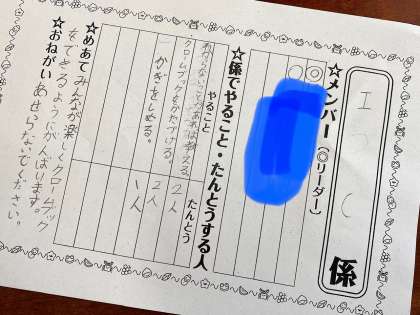 エつく 係
☆メンバー（◎リーダー）
◎
○
☆係でやること・たんとうする人
やること たんとう
わからないことがあれば教える。 2人
クロムブックをかたづける。 2人
かぎをしめる。 1人
☆めあて みんなが楽しくクロームブック
をできるようにがんばります。
☆おねがい あせらないでください。